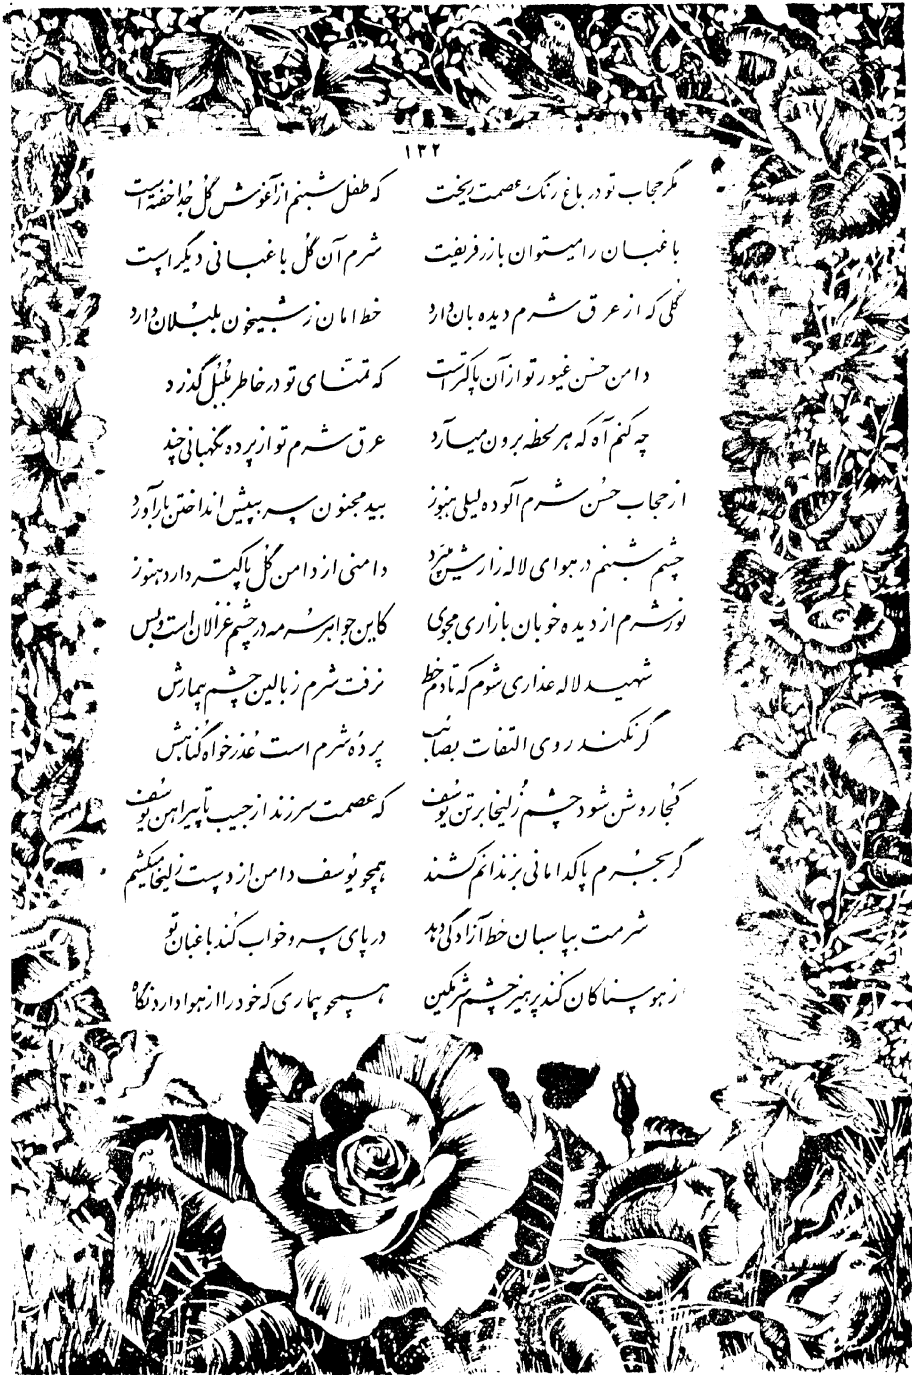 ۱۳۲
مگر حجاب تو در باغ رنگ عصمت ریخت که طفل شبنم از آغوش گل جدا خفته است
باغبان را میتوان با زر فریفت شرم آن گل باغبانی دیگر است
گلی که از عرق شرم دیده بان دارد خط امان ز شبیخون بلبلان دارد
دامن حسن غیور تو از آن پاکتر است که تمنای تو در خاطر بلبل گذرد
چه کنم آه که هر لحظه برون میآرد عرق شرم تو از پرده نگهبانی چند
از حجاب حسن شرم آلوده لیلی هنوز بید مجنون سر بپیش انداختن بار آورد
چشم شبنم در هوای لاله زارش میپرد دامنی از دامن گل پاکتر دارد هنوز
نور شرم از دیده خوبان بازاری مجوی کاین جواهر سرمه در چشم غزالان است و بس
شهید لاله عذاری شوم که تا دم خط نرفت شرم ز بالین چشم بیمارش
گر نکند روی التفات بصائب پرده شرم است عذرخواه گناهش
کجا روشن شود چشم زلیخا بر تن یوسف که عصمت سر زند از جیب تا پیراهن یوسف
گر بجرم پاکدامانی بزندانم کشند همچو یوسف دامن از دست زلیخا میکشم
شرمت بپاسبان خط آزادگی دهد در پای سرو خواب کند باغبان تو
ز هوسناکان کند پرهیز چشم شرمگین همچو بیماری که خود را از هوا دارد نگاه